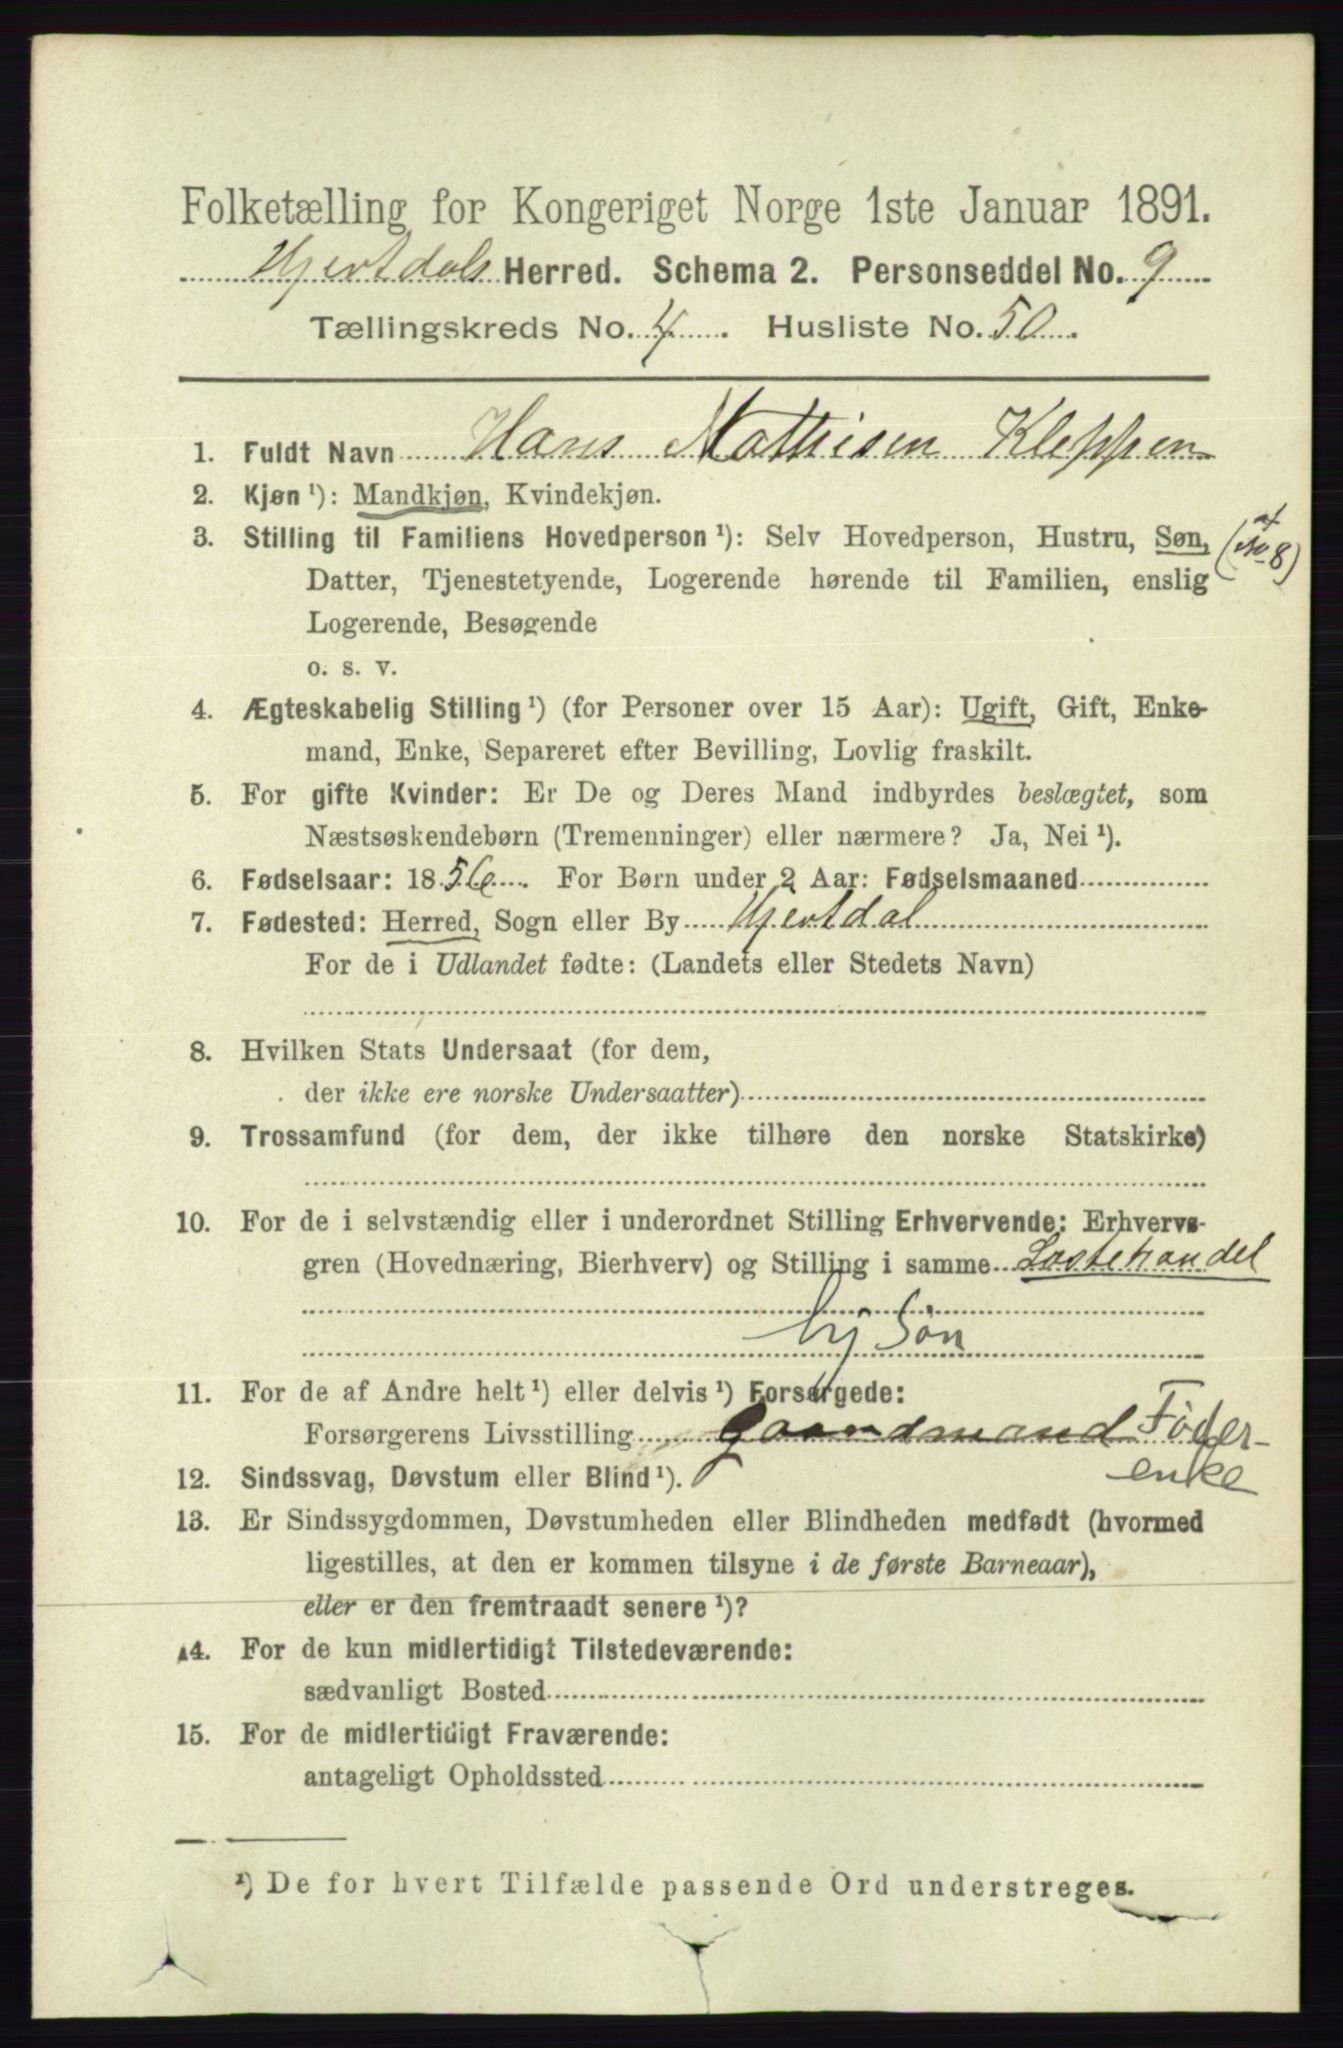 Folketælling for Kongeriget Norge 1ste Januar 1891.
Hjertdals Herred. Schema 2. Personseddel No. 9
Tællingskreds No. 4. Husliste No. 50.
1. Fuldt Navn Hans Mathisen Kleppen
2. Kjøn ¹): Mandkjøn, Kvindekjøn.
3. Stilling til Familiens Hovedperson ¹): Selv Hovedperson, Hustru, Søn, (af No 8)
Datter, Tjenestetyende, Logerende hørende til Familien, enslig
Logerende, Besøgende
o. s. v.
4. Ægteskabelig Stilling ¹) (for Personer over 15 Aar): Ugift, Gift, Enke-
mand, Enke, Separeret efter Bevilling, Lovlig fraskilt.
5. For gifte Kvinder: Er De og Deres Mand indbyrdes beslægtet, som
Næstsøskendebørn (Tremenninger) eller nærmere? Ja, Nei ¹).
6. Fødselsaar: 1856. For Børn under 2 Aar: Fødselsmaaned
7. Fødested: Herred, Sogn eller By Hjertdal
For de i Udlandet fødte: (Landets eller Stedets Navn)
8. Hvilken Stats Undersaat (for dem,
der ikke ere norske Undersaatter)
9. Trossamfund (for dem, der ikke tilhøre den norske Statskirke)
10. For de i selvstændig eller i underordnet Stilling Erhvervende: Erhvervs-
gren (Hovednæring, Bierhverv) og Stilling i samme
Søn
11. For de af Andre helt ¹) eller delvis ¹) Forsørgede:
Forsørgerens Livsstilling Gaardmand Føder-
enke
12. Sindssvag, Døvstum eller Blind ¹).
13. Er Sindssygdommen, Døvstumheden eller Blindheden medfødt (hvormed
ligestilles, at den er kommen tilsyne i de første Barneaar),
eller er den fremtraadt senere ¹)?
14. For de kun midlertidigt Tilstedeværende:
sædvanligt Bosted
15. For de midlertidigt Fraværende:
antageligt Opholdssted
¹) De for hvert Tilfælde passende Ord understreges.